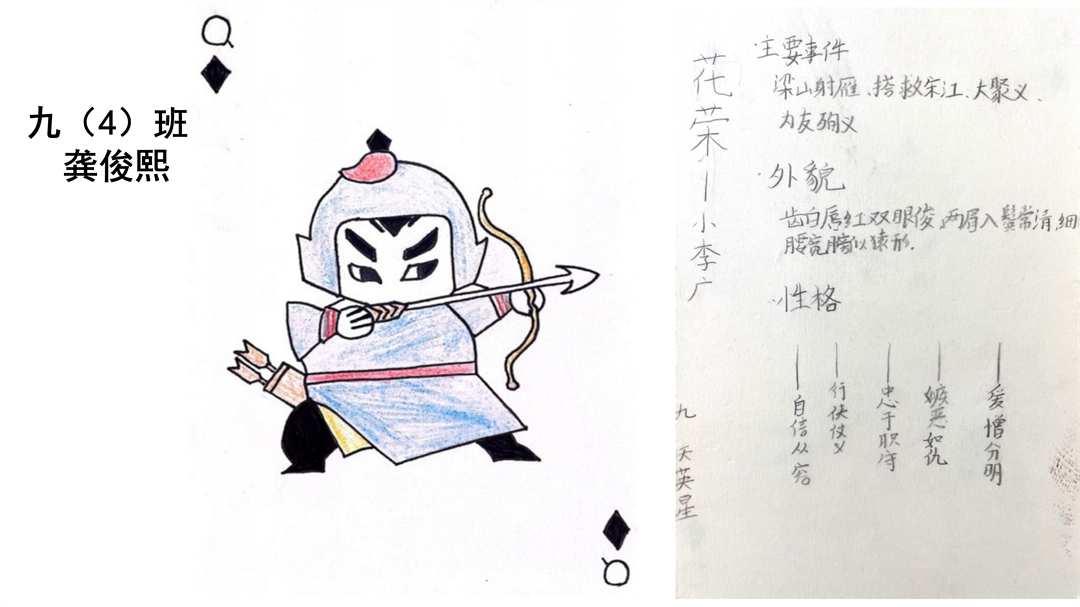 Q
九（4）班
龚俊熙
Q
花荣——小李广
九 天英星
·主要事件
梁山射雁、搭救宋江、大聚义、
为友殉义
·外貌
齿白唇红双眼俊,两眉入鬓常清,细
腰宽膀似猿形.
·性格
——自信从容
——行侠仗义
——忠于职守
——嫉恶如仇
——爱憎分明